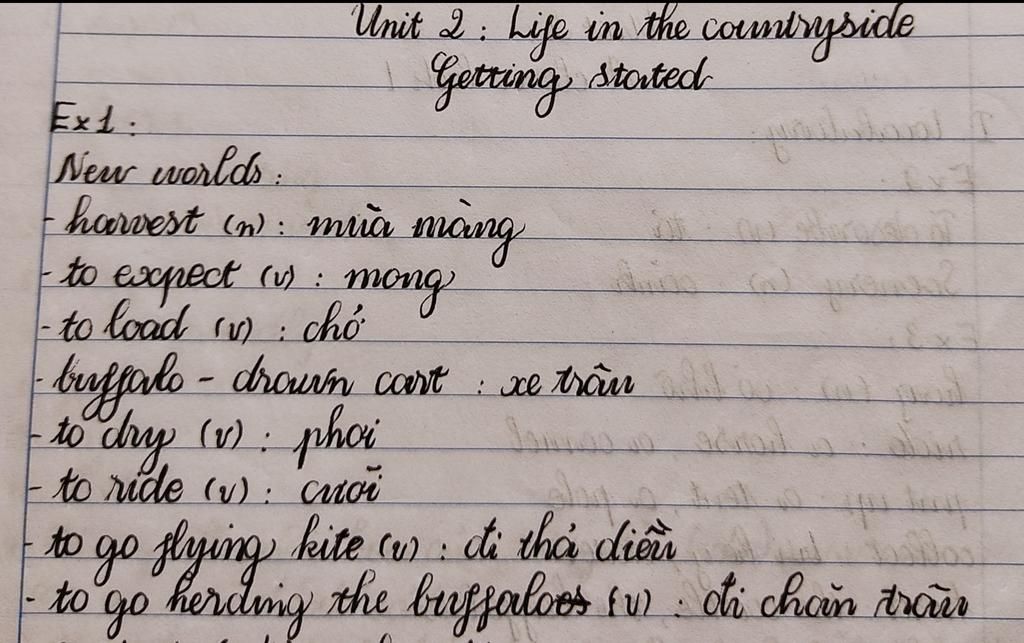 Unit 2 : Life in the countryside
Getting stated
Ex1 :
New worlds :
- harvest (n) : mùa màng
- to expect (v) : mong
- to load (v) : chở
- buffalo - drawn cart : xe trâu
- to dry (v) : phơi
- to ride (v) : cưỡi
- to go flying kite (v) : đi thả diều
- to go herding the buffaloes (v) : đi chăn trâu